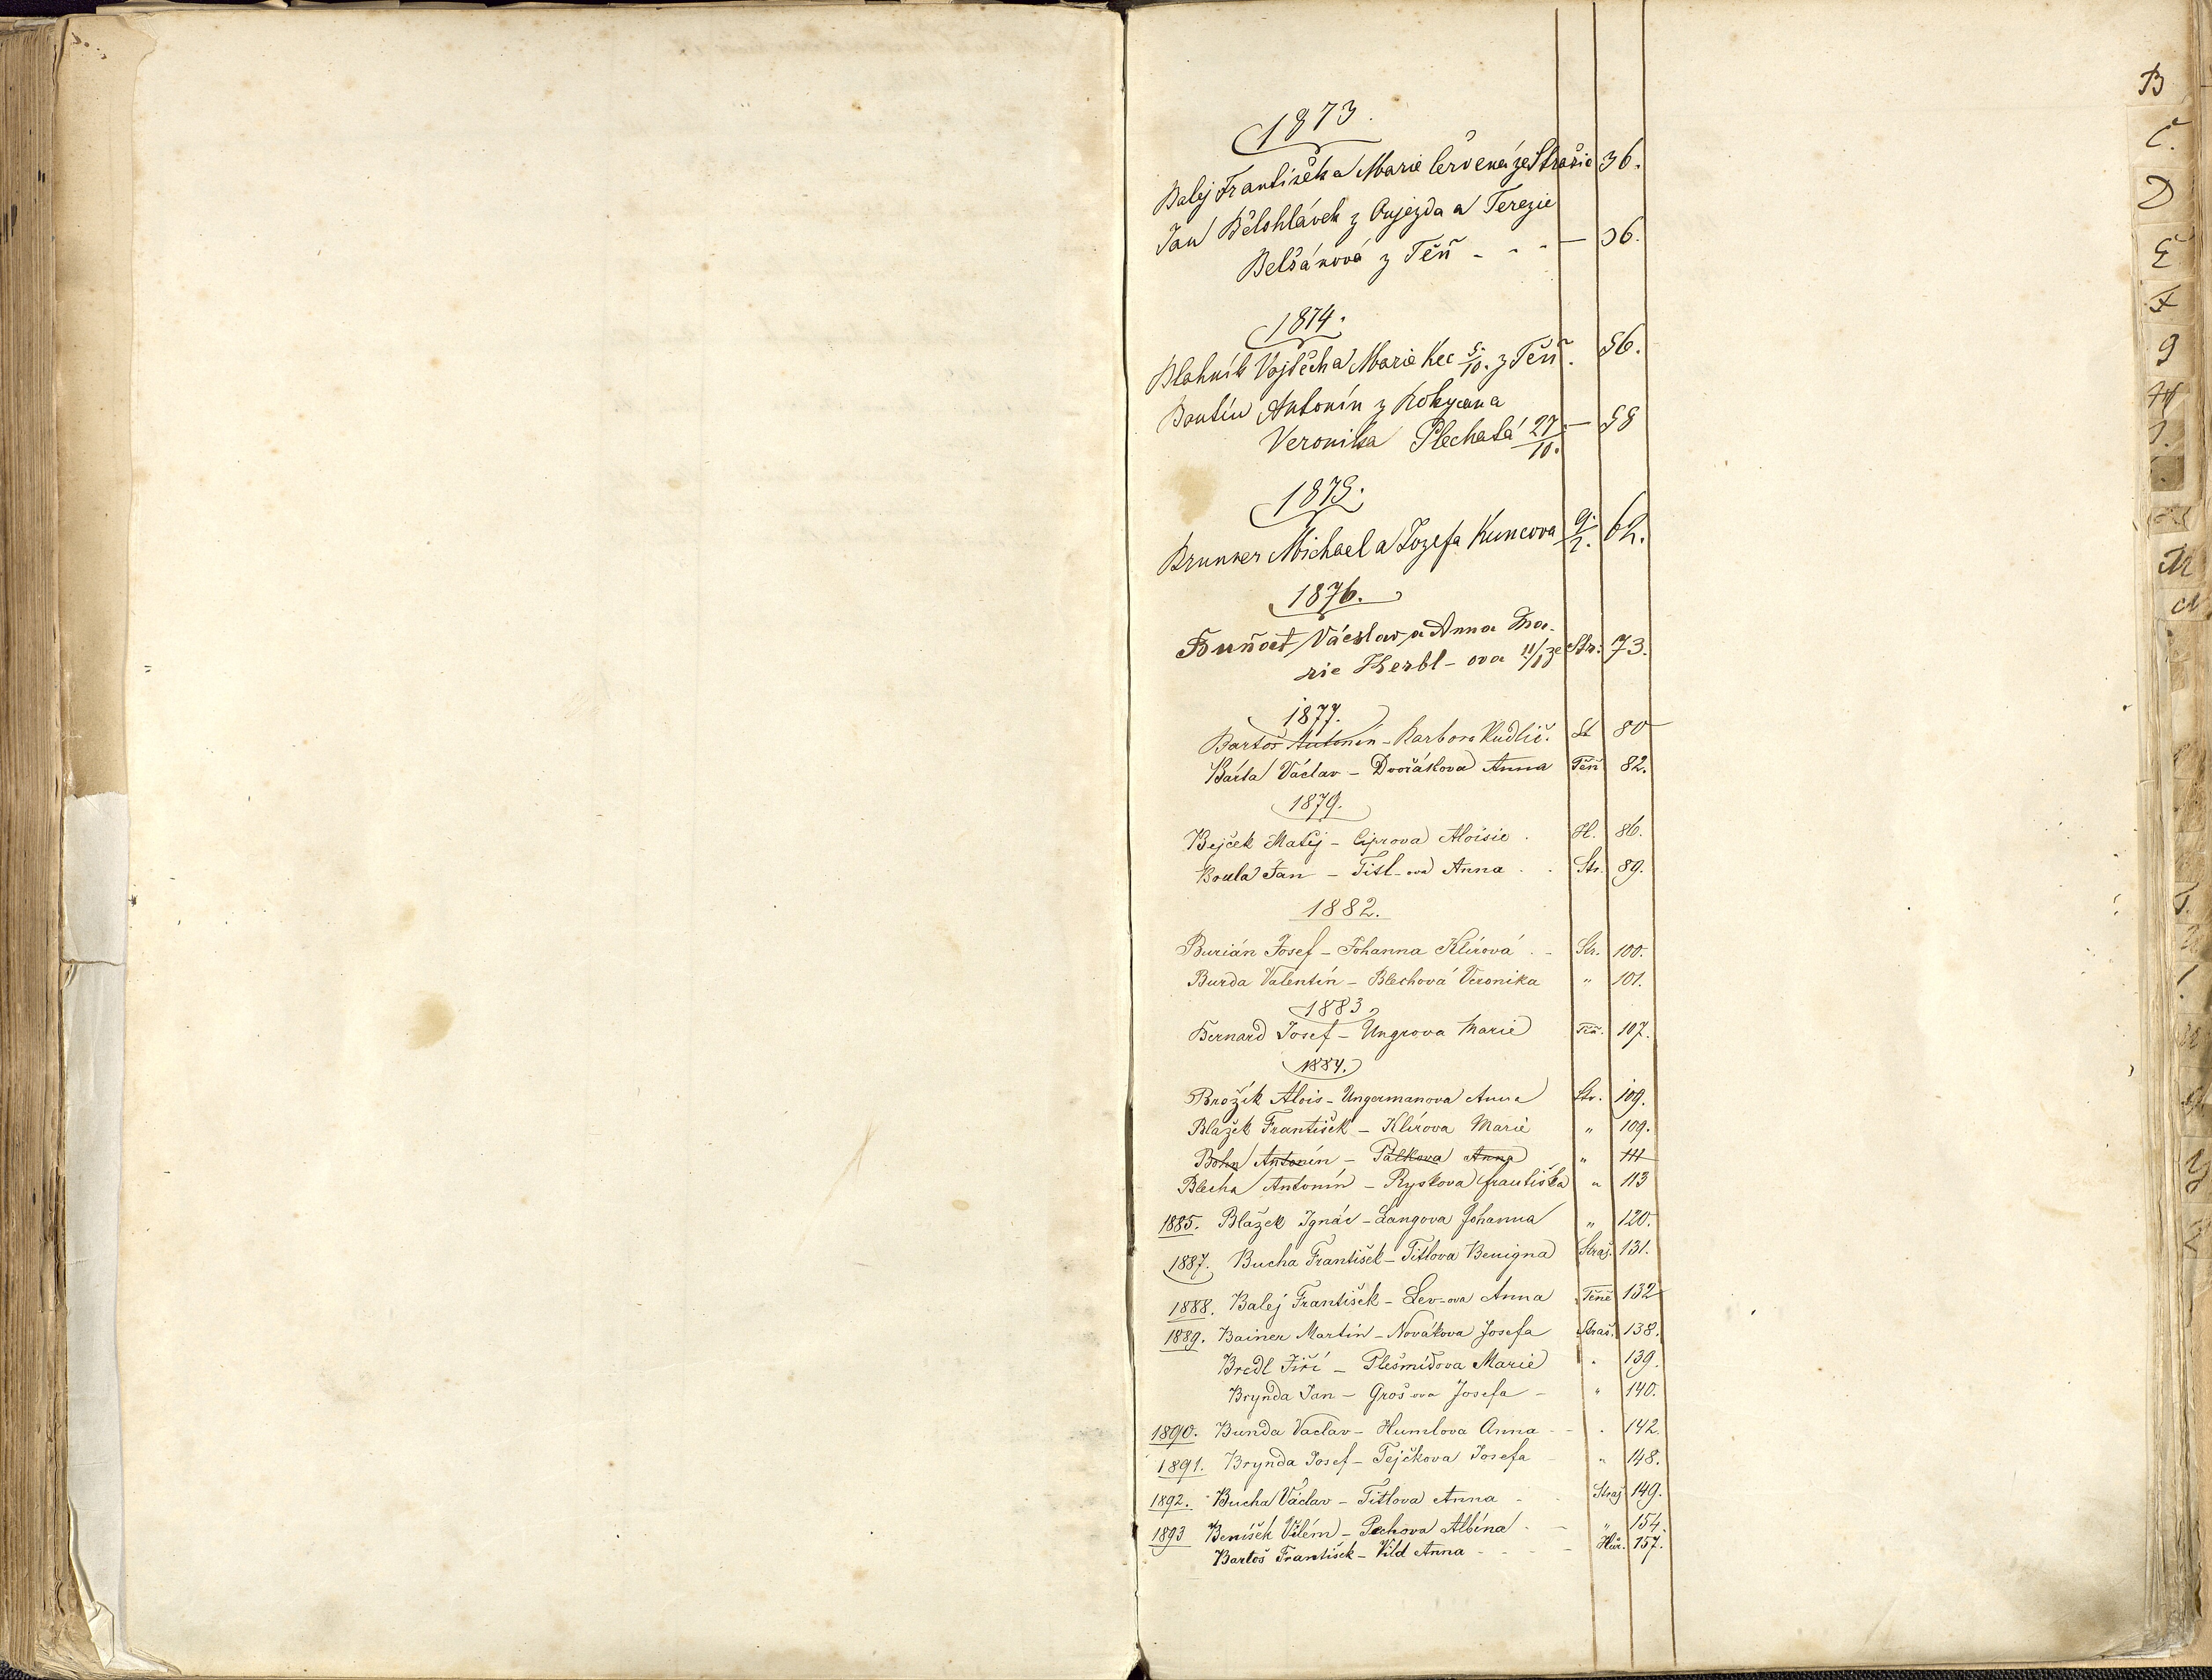 1873.
Balej František a Marie Červená ze Strašic 36.
Jan Bělohlávek z Oujezda a Terezie
Belšánová z Těň - - - — 36.
1874.
Blahník Vojtěch a Marie Kec 5./10. z Těň. 56.
Boutin Antonín z Rokycan a
Veronika Plechatá 27/10. — 58
1875.
Brunner Michael a Jozefa Kuncova 9./2. 62.
1876.
Buňat Václav a Anna Ma-
rie Herbl-ova 11/1 ze Str. 73.
1877.
Bartoš Antonín - Barbora Kudlič. St 80
Bárta Václav - Dvořákova Anna Těň 82.
1879.
Bejček Matěj - Ciprova Aloisie . H. 86.
Boula Jan - Titl-ova Anna . . Str. 89.
1882.
Burián Josef - Johanna Klírová . - Str. 100.
Burda Valentin - Blechová Veronika " 101.
1883.
Bernard Josef - Ungrova Marie Těň. 107.
1884.
Brožík Alois - Ungermanova Anna Str. 109.
Blažek František - Klírova Marie " 109.
Bohn Antonín - Palkova Anna " 111
Blecha Antonín - Ryskova františka " 113
1885. Blažek Ignác - Langova Johanna " 120.
1887. Bucha František - Titlova Benigna Straš. 131.
1888. Balej František - Lev-ova Anna Těně 132
1889. Bainer Martin - Novákova Josefa Straš. 138.
Bredl Jiří - Plešmídova Marie " 139.
Brynda Jan - Groš ova Josefa - " 140.
1890. Bunda Vaclav - Humlova Anna - - " 142.
1891. Brynda Josef - Tejčkova Josefa - " 148.
1892. Bucha Václav - Titlova Anna - Straš 149.
1893 Beníšek Vilém - Pechova Albína - - " 154.
Bartoš František - Vild Anna - - - - Hůr. 157.
B
Č.
D
E
F
G
H
J.
M
N